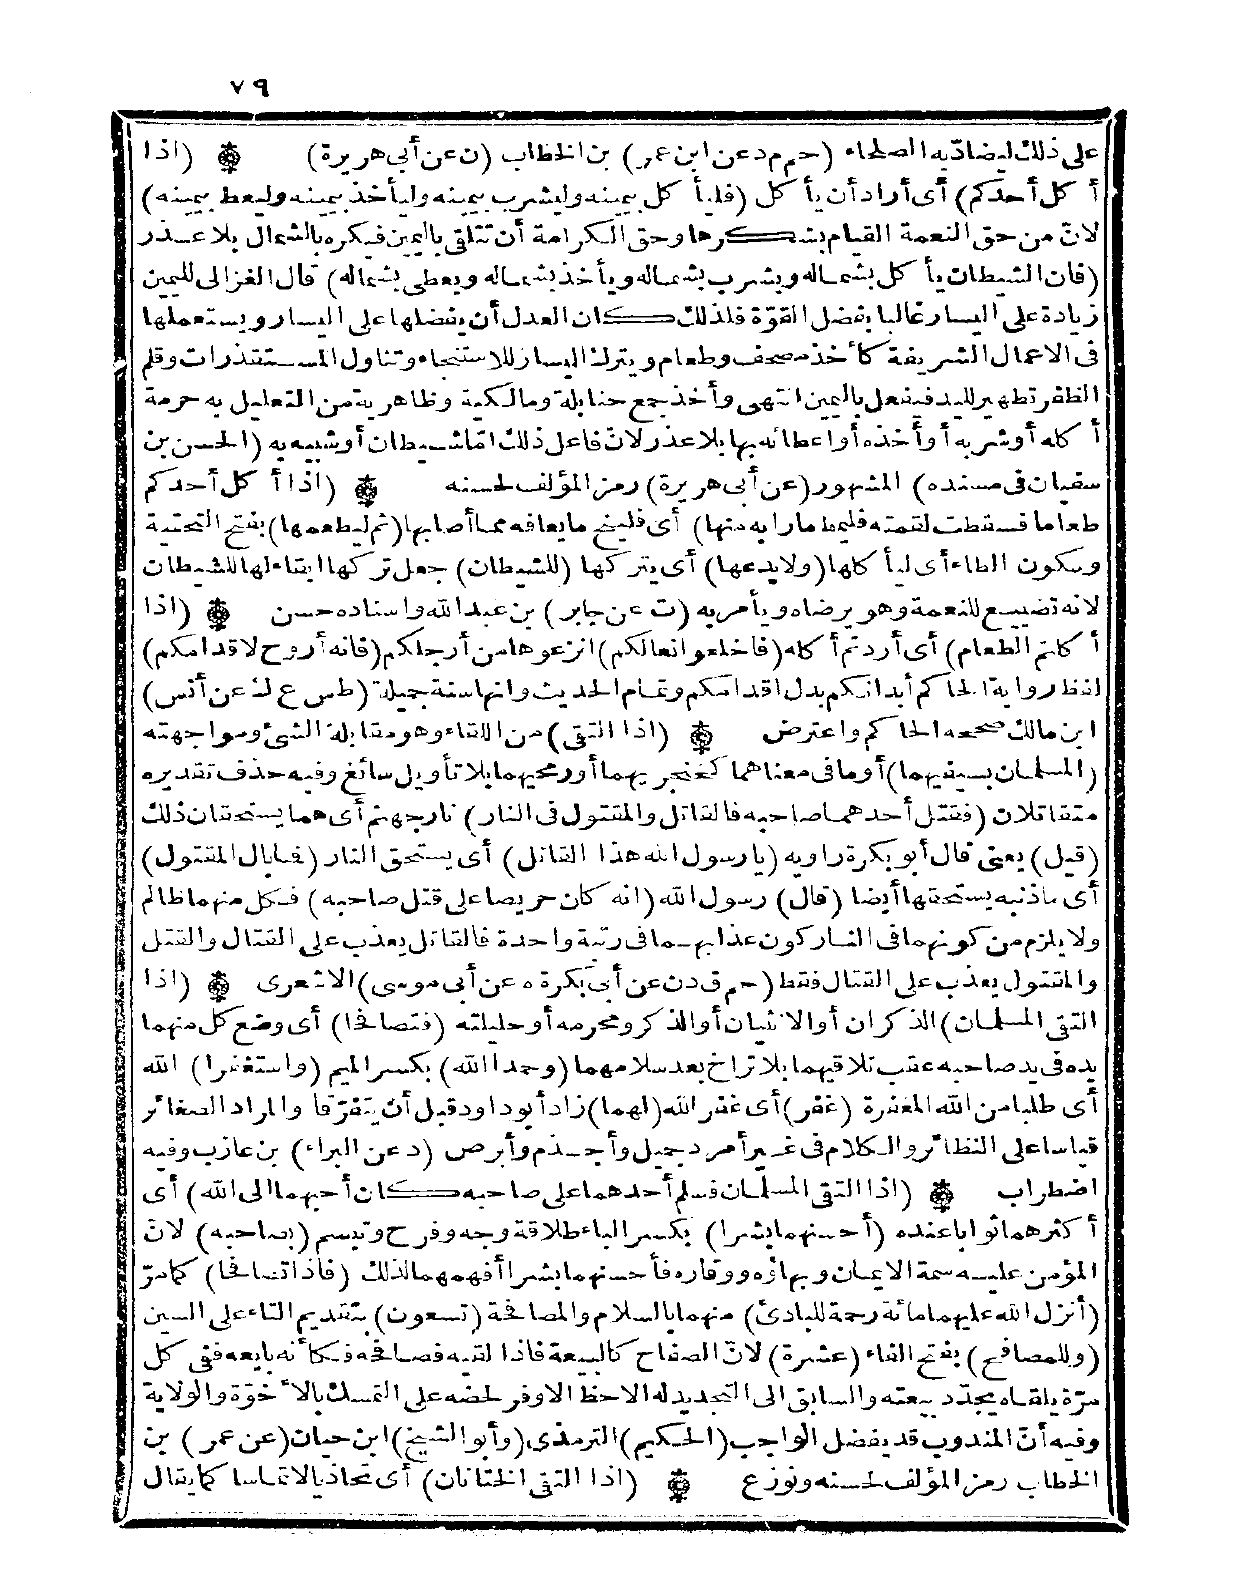 ٧٩
على ذلك ليضادّ به الصلحاء (حم م د عن ابن عمر) بن الخطاب (ن عن أبى هريرة) ۞ (اذا
أكل أحدكم) أى أراد أن يأكل (فليأكل بيمينه وليشرب بيمينه وليأخذ بيمينه وليعط بيمينه)
لانّ من حق النعمة القيام بشكرها وحق الكرامة أن تتلقى باليمين فيكره بالشمال بلا عذر
(فان الشيطان يأكل بشماله ويشرب بشماله ويأخذ بشماله ويعطى بشماله) قال الغزالى لليمين
زيادة على اليسار غالبا بفضل القوّة فلذلك كان العدل أن يفضلها على اليسار ويستعملها
فى الاعمال الشريفة كأخذ مصحف وطعام ويترك اليسار للاستنجاء وتناول المستقذرات وقلم
الظفر تطهير لليد فيفعل باليمين انتهى وأخذ جمع حنابلة ومالكية وظاهرية من التعليل به حرمة
أكله أو شربه أو أخذه أو اعطائه بها بلا عذر لانّ فاعل ذلك امّا شيطان أو شبيه به (الحسن بن
سفيان فى مسنده) المشهور (عن أبى هريرة) رمز المؤلف لحسنه ۞ (اذا أكل أحدكم
طعاما فسقطت لقمته فليمط ما رابه منها) أى فلينح ما يعافه مما أصابها (ثم ليطعمها) بفتح التحتية
وسكون الطاء أى ليأكلها (ولا يدعها) أى يتركها (للشيطان) جعل تركها ابقاء لها للشيطان
لانه تضييع للنعمة وهو يرضاه ويأمر به (ت عن جابر) بن عبد الله واسناده حسن ۞ (اذا
أكلتم الطعام) أى أردتم أكله (فاخلعوا نعالكم) انزعوها من أرجلكم (فانه أروح لاقدامكم)
لفظ رواية الحاكم أبدانكم بدل اقدامكم وتمام الحديث وانها سنة جميلة (طس ع ك عن أنس)
ابن مالك صححه الحاكم واعترض ۞ (اذا التقى) من اللقاء وهو مقابلة الشئ ومواجهته
(المسلمان بسيفيهما) أو ما فى معناهما كخنجريهما أو رمحيهما بلا تأويل سائغ وفيه حذف تقديره
متقاتلان (فقتل أحدهما صاحبه فالقاتل والمقتول فى النار) نار جهنم أى هما يستحقان ذلك
(قيل) يعنى قال أبو بكرة راويه (يا رسول الله هذا القاتل) أى يستحق النار (فما بال المقتول)
أى ما ذنبه يستحقها أيضا (قال) رسول الله (انه كان حريصا على قتل صاحبه) فكل منهما ظالم
ولا يلزم من كونهما فى النار كون عذابهما فى رتبة واحدة فالقاتل يعذب على القتال والقتل
والمقتول يعذب على القتال فقط (حم ق د ن عن أبى بكرة ه عن أبى موسى) الاشعرى ۞ (اذا
التقى المسلمان) الذكران أو الانثيان أو الذكر ومحرمه أو حليلته (فتصافحا) أى وضع كل منهما
يده فى يد صاحبه عقب تلاقيهما بلا تراخ بعد سلامهما (وحمدا الله) بكسر الميم (واستغفرا) الله
أى طلبا من الله المغفرة (غفر) أى غفر الله (لهما) زاد أبو داود قبل أن يتفرّقا والمراد الصغائر
قياسا على النظائر والكلام فى غير أمرد جميل وأجذم وأبرص (د عن البراء) بن عازب وفيه
اضطراب ۞ (اذا التقى المسلمان فسلم أحدهما على صاحبه كان أحبهما الى الله) أى
أكثرهما ثوابا عنده (أحسنهما بشرا) بكسر الباء طلاقة وجه وفرح وتبسم (بصاحبه) لانّ
المؤمن عليه سمة الايمان وبهاؤه ووقاره فأحسنهما بشرا أفهمهما لذلك (فاذا تصافحا) كما مرّ
(أنزل الله عليهما مائة رحمة للبادئ) منهما بالسلام والمصافحة (تسعون) بتقديم التاء على السين
(وللمصافح) بفتح الفاء (عشرة) لانّ الصفاح كالبيعة فاذا لقيه فصافحه فكأنه بايعه ففى كل
مرّة يلقاه يجدّد بيعته والسابق الى التجديد له الاحظ الاوفر لحضه على التمسك بالأخوّة والولاية
وفيه أنّ المندوب قد يفضل الواجب (الحكيم) الترمذى (وأبو الشيخ) ابن حيان (عن عمر) بن
الخطاب رمز المؤلف لحسنه ونوزع ۞ (اذا التقى الختانان) أى تحاذيا لا تماسا كما يقال